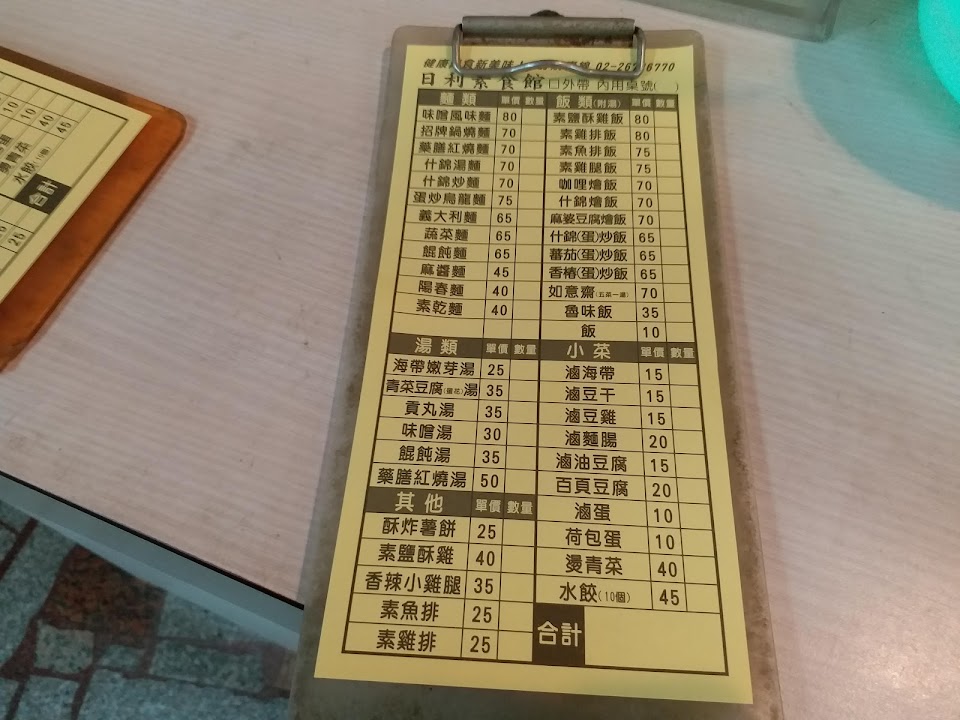 健康 食新美味 02-26 6770
日利素食館 □外帶 內用桌號( )
麵類 單價 數量 飯類(附湯) 單價 數量
味噌風味麵 80 素鹽酥雞飯 80
招牌鍋燒麵 70 素雞排飯 80
藥膳紅燒麵 70 素魚排飯 75
什錦湯麵 70 素雞腿飯 75
什錦炒麵 70 咖哩燴飯 70
蛋炒烏龍麵 75 什錦燴飯 70
義大利麵 65 麻婆豆腐燴飯 70
蔬菜麵 65 什錦(蛋)炒飯 65
餛飩麵 65 蕃茄(蛋)炒飯 65
麻醬麵 45 香椿(蛋)炒飯 65
陽春麵 40 如意齋(五菜一湯) 70
素乾麵 40 魯味飯 35
飯 10
湯類 單價 數量 小菜 單價 數量
海帶嫩芽湯 25 滷海帶 15
青菜豆腐(蛋花)湯 35 滷豆干 15
貢丸湯 35 滷豆雞 15
味噌湯 30 滷麵腸 20
餛飩湯 35 滷油豆腐 15
藥膳紅燒湯 50 百頁豆腐 20
其他 單價 數量 滷蛋 10
酥炸薯餅 25 荷包蛋 10
素鹽酥雞 40 燙青菜 40
香辣小雞腿 35 水餃(10個) 45
素魚排 25 合計
素雞排 25
10
10
40
45
青菜
水餃
合計
25